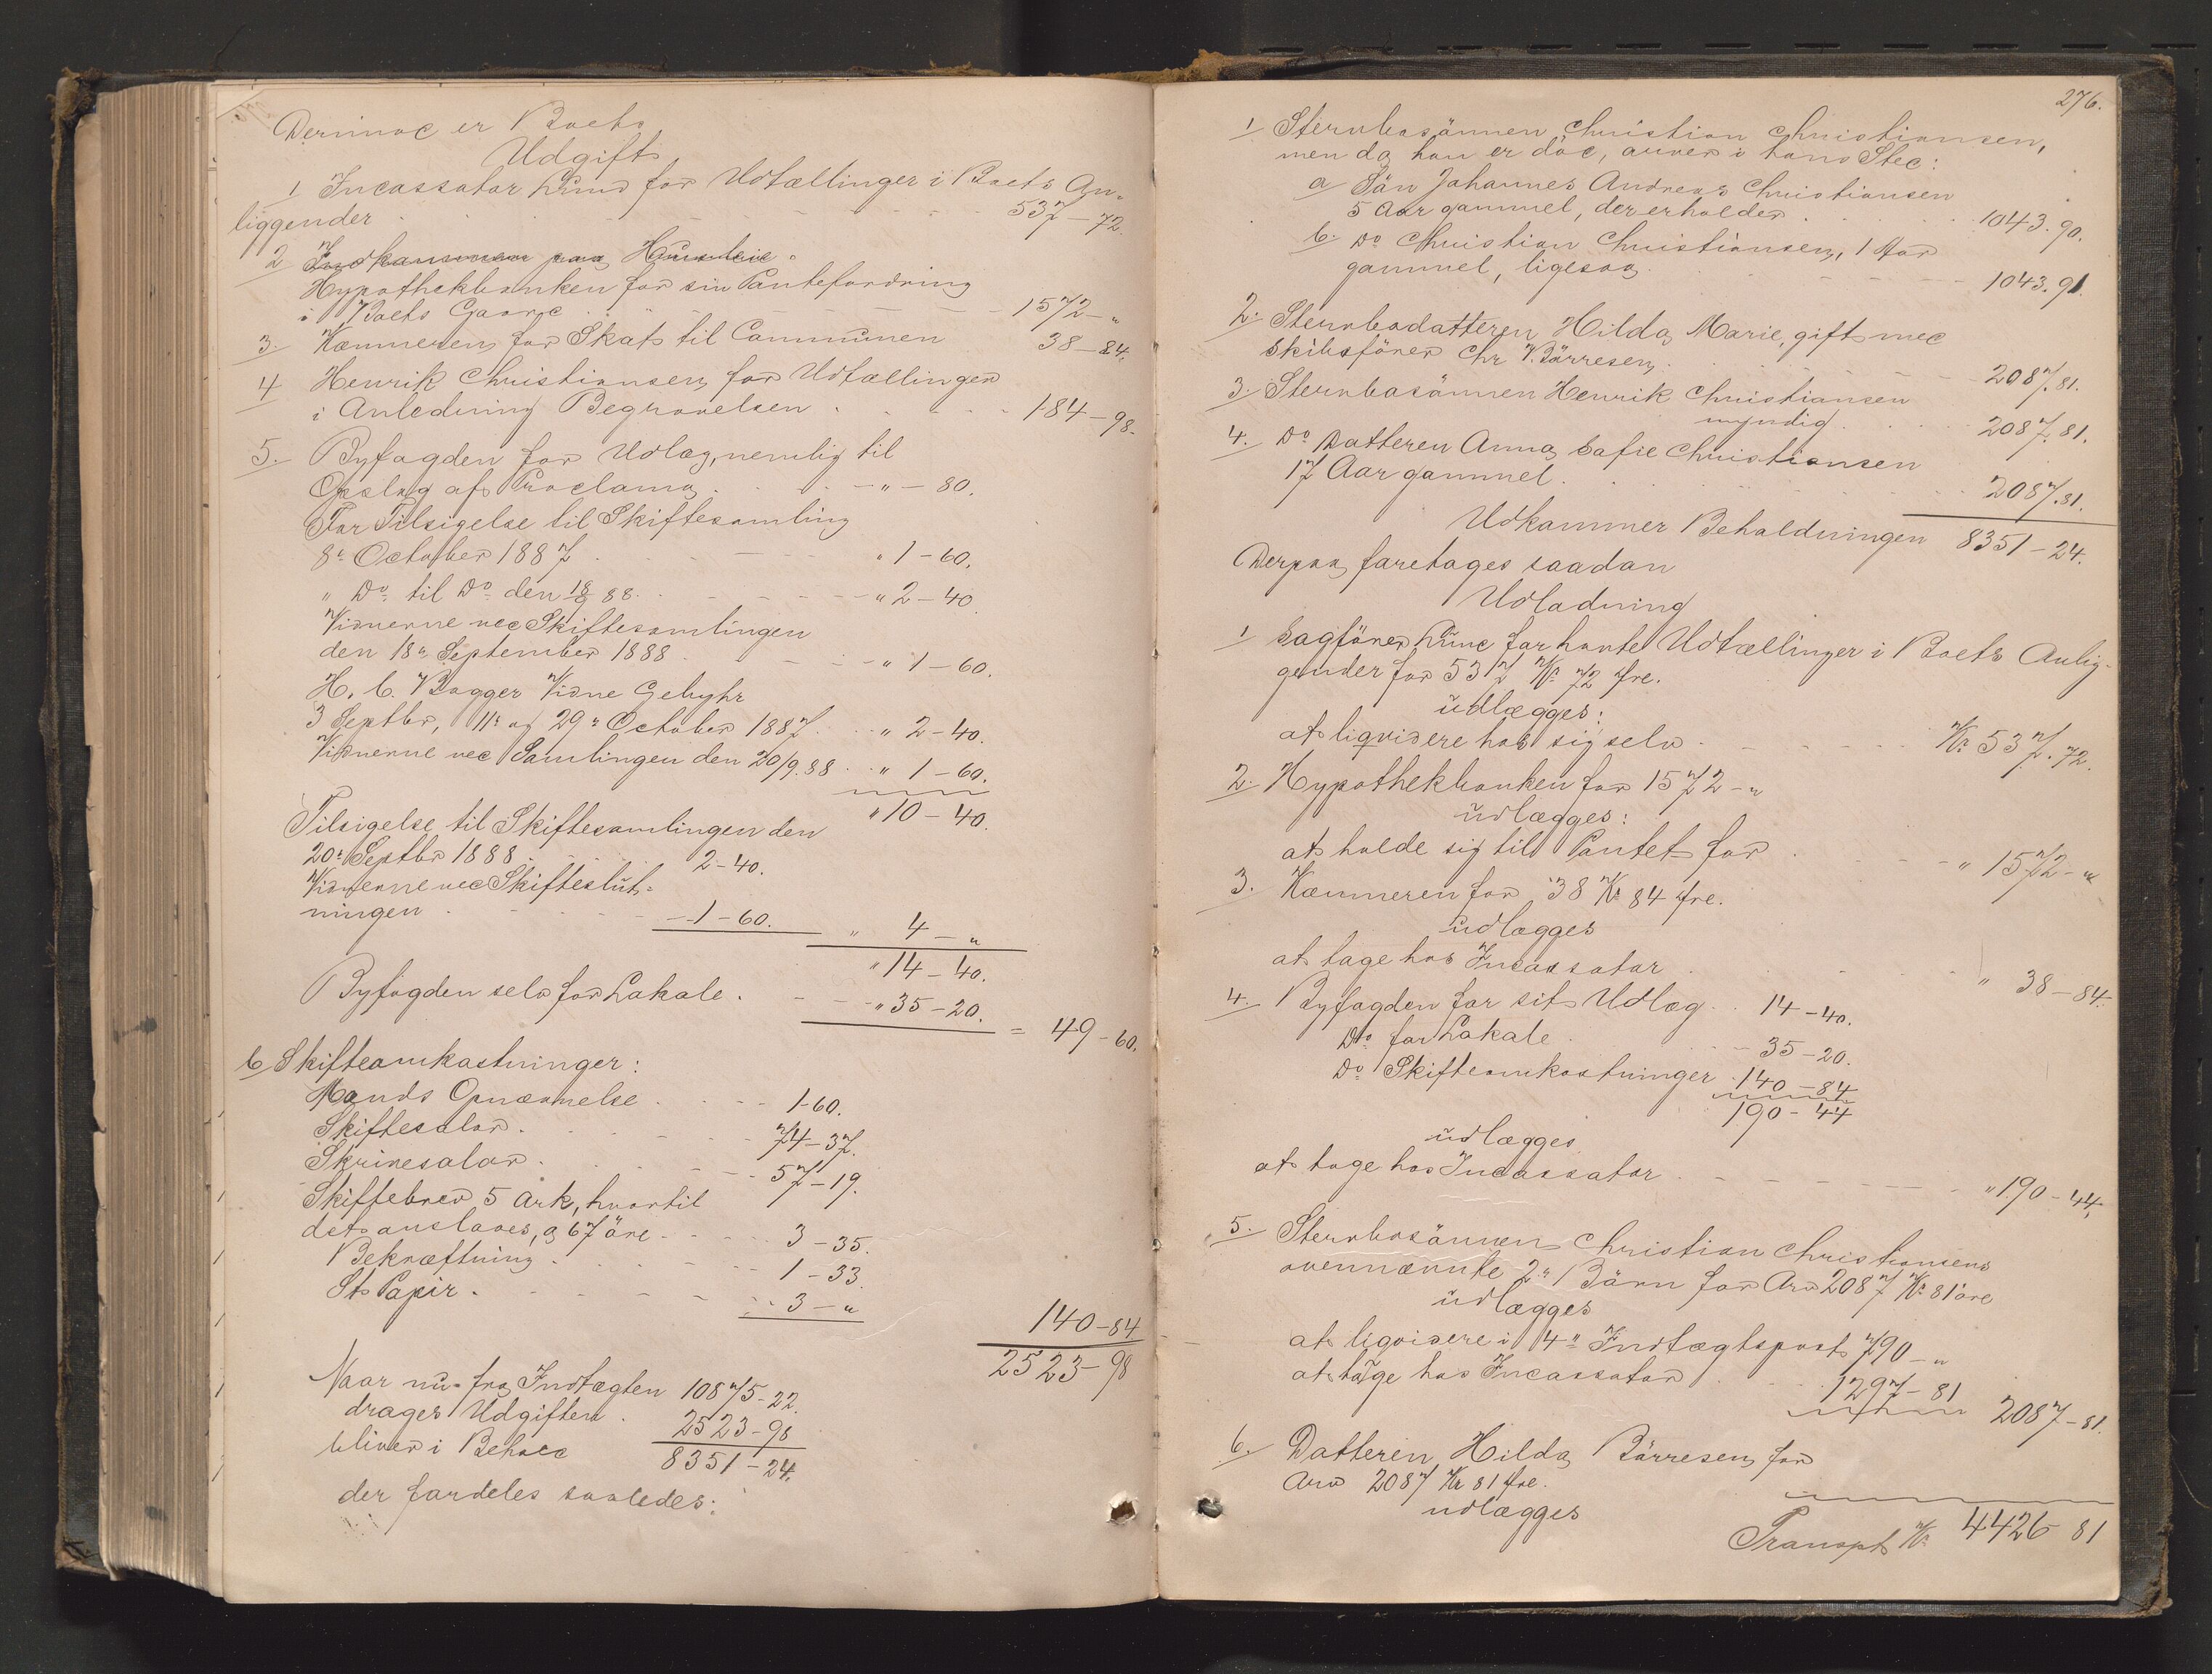 Derimod er Boets
Udgift
1 Incassator Lund for Udtællinger i Boets An-
liggender 537-72.
2 Indkommen paa Huusleie
Hypothekbanken for sin Pantefordring
i Boets Gaard 1572-"
3. Kæmneren for Skat til Communen 38-84.
4 Henrik Christiansen for Udtællinger
i Anledning Begravelsen 184-98.
5. Byfogden for Udlæg, nemlig til
Opslag af Proclama "-80.
For Tilsigelse til Skiftesamling
8de October 1887 " 1-60.
" Do til Do den 18/9 88 " 2-40
Vidnerne ved Skiftesamlingen
den 18de September 1888 " 1-60.
H. C. Bagger Vidne Gebyhr
3 Septbr, 11te og 29de October 1887 " 2-40.
Vidnerne ved Samlingen den 20/9.88 " 1-60.
" 10-40.
Tilsigelse til Skiftesamlingen den
20de Septbr 1888 2-40.
Vidnerne ved Skifteslut-
ningen 1-60. " 4-"
" 14-40.
Byfogden selv for Lokale. " 35-20.
= 49-60.
6 Skifteomkostninger:
Mænds Opnævnelse 1-60.
Skiftesalær 74-37.
Skrivesalær 57-19.
Skiftebrev 5 Ark, hvortil
det anslaaes, a 67 öre 3-35.
Bekræftning 1-33.
St. Papir 3-"
140-84
2523-98
Naar nu fra Indtægten 10875-22.
drages Udgiften 2523-98
bliver i Behold 8351-24.
der fordeles saaledes:
276.
1 Stervbosönnen Christian Christiansen,
men da han er död, arver i hans Sted:
a Sön Johannes Andreas Christiansen
5 Aar gammel, der erholder 1043.90.
b. Do Christian Christiansen, 1 Aar
gammel, ligesaa 1043.91.
2. Stervbodatteren Hilda Marie, gift med
Skibsförer Chr V. Börresen 2087.81.
3. Stervbosönnen Henrik Christiansen
myndig 2087.81.
4. Do Datteren Anna Sofie Christiansen
17 Aar gammel 2087.81.
Udkommer Beholdningen 8351-24.
Derpaa foretages saadan
Udlodning
1 Sagförer Lund for havte Udtællinger i Boets Anlig-
gender for 537 Kr 72 Øre.
udlægges:
at liqvidere hos sig selv Kr 537.72.
2. Hypothekbanken for 1572-"
udlægges:
at holde sig til Pantet for " 1572-"
3. Kæmneren for 38 Kr 84 Øre.
udlægges
at tage hos Incassator " 38-84.
4. Byfogden for sit Udlæg 14-40.
Do for Lokale 35-20.
Do Skifteomkostninger 140-84
190-44
udlægges
at tage hos Incassator " 190-44.
5. Stervbosönnen Christian Christiansens
ovennævnte 2de Börn for Arv 2087 Kr 81 öre
udlægges
at liqvidere i 4de Indtægtspost 790-"
at tage hos Incassator 1297-81
2087-81.
6. Datteren Hilda Börresen for
Arv 2087 Kr 81 Øre.
udlægges
Transpt Kr 4426 81